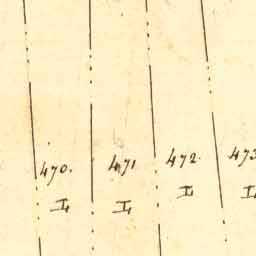 470. 471 472. 473
I I I I